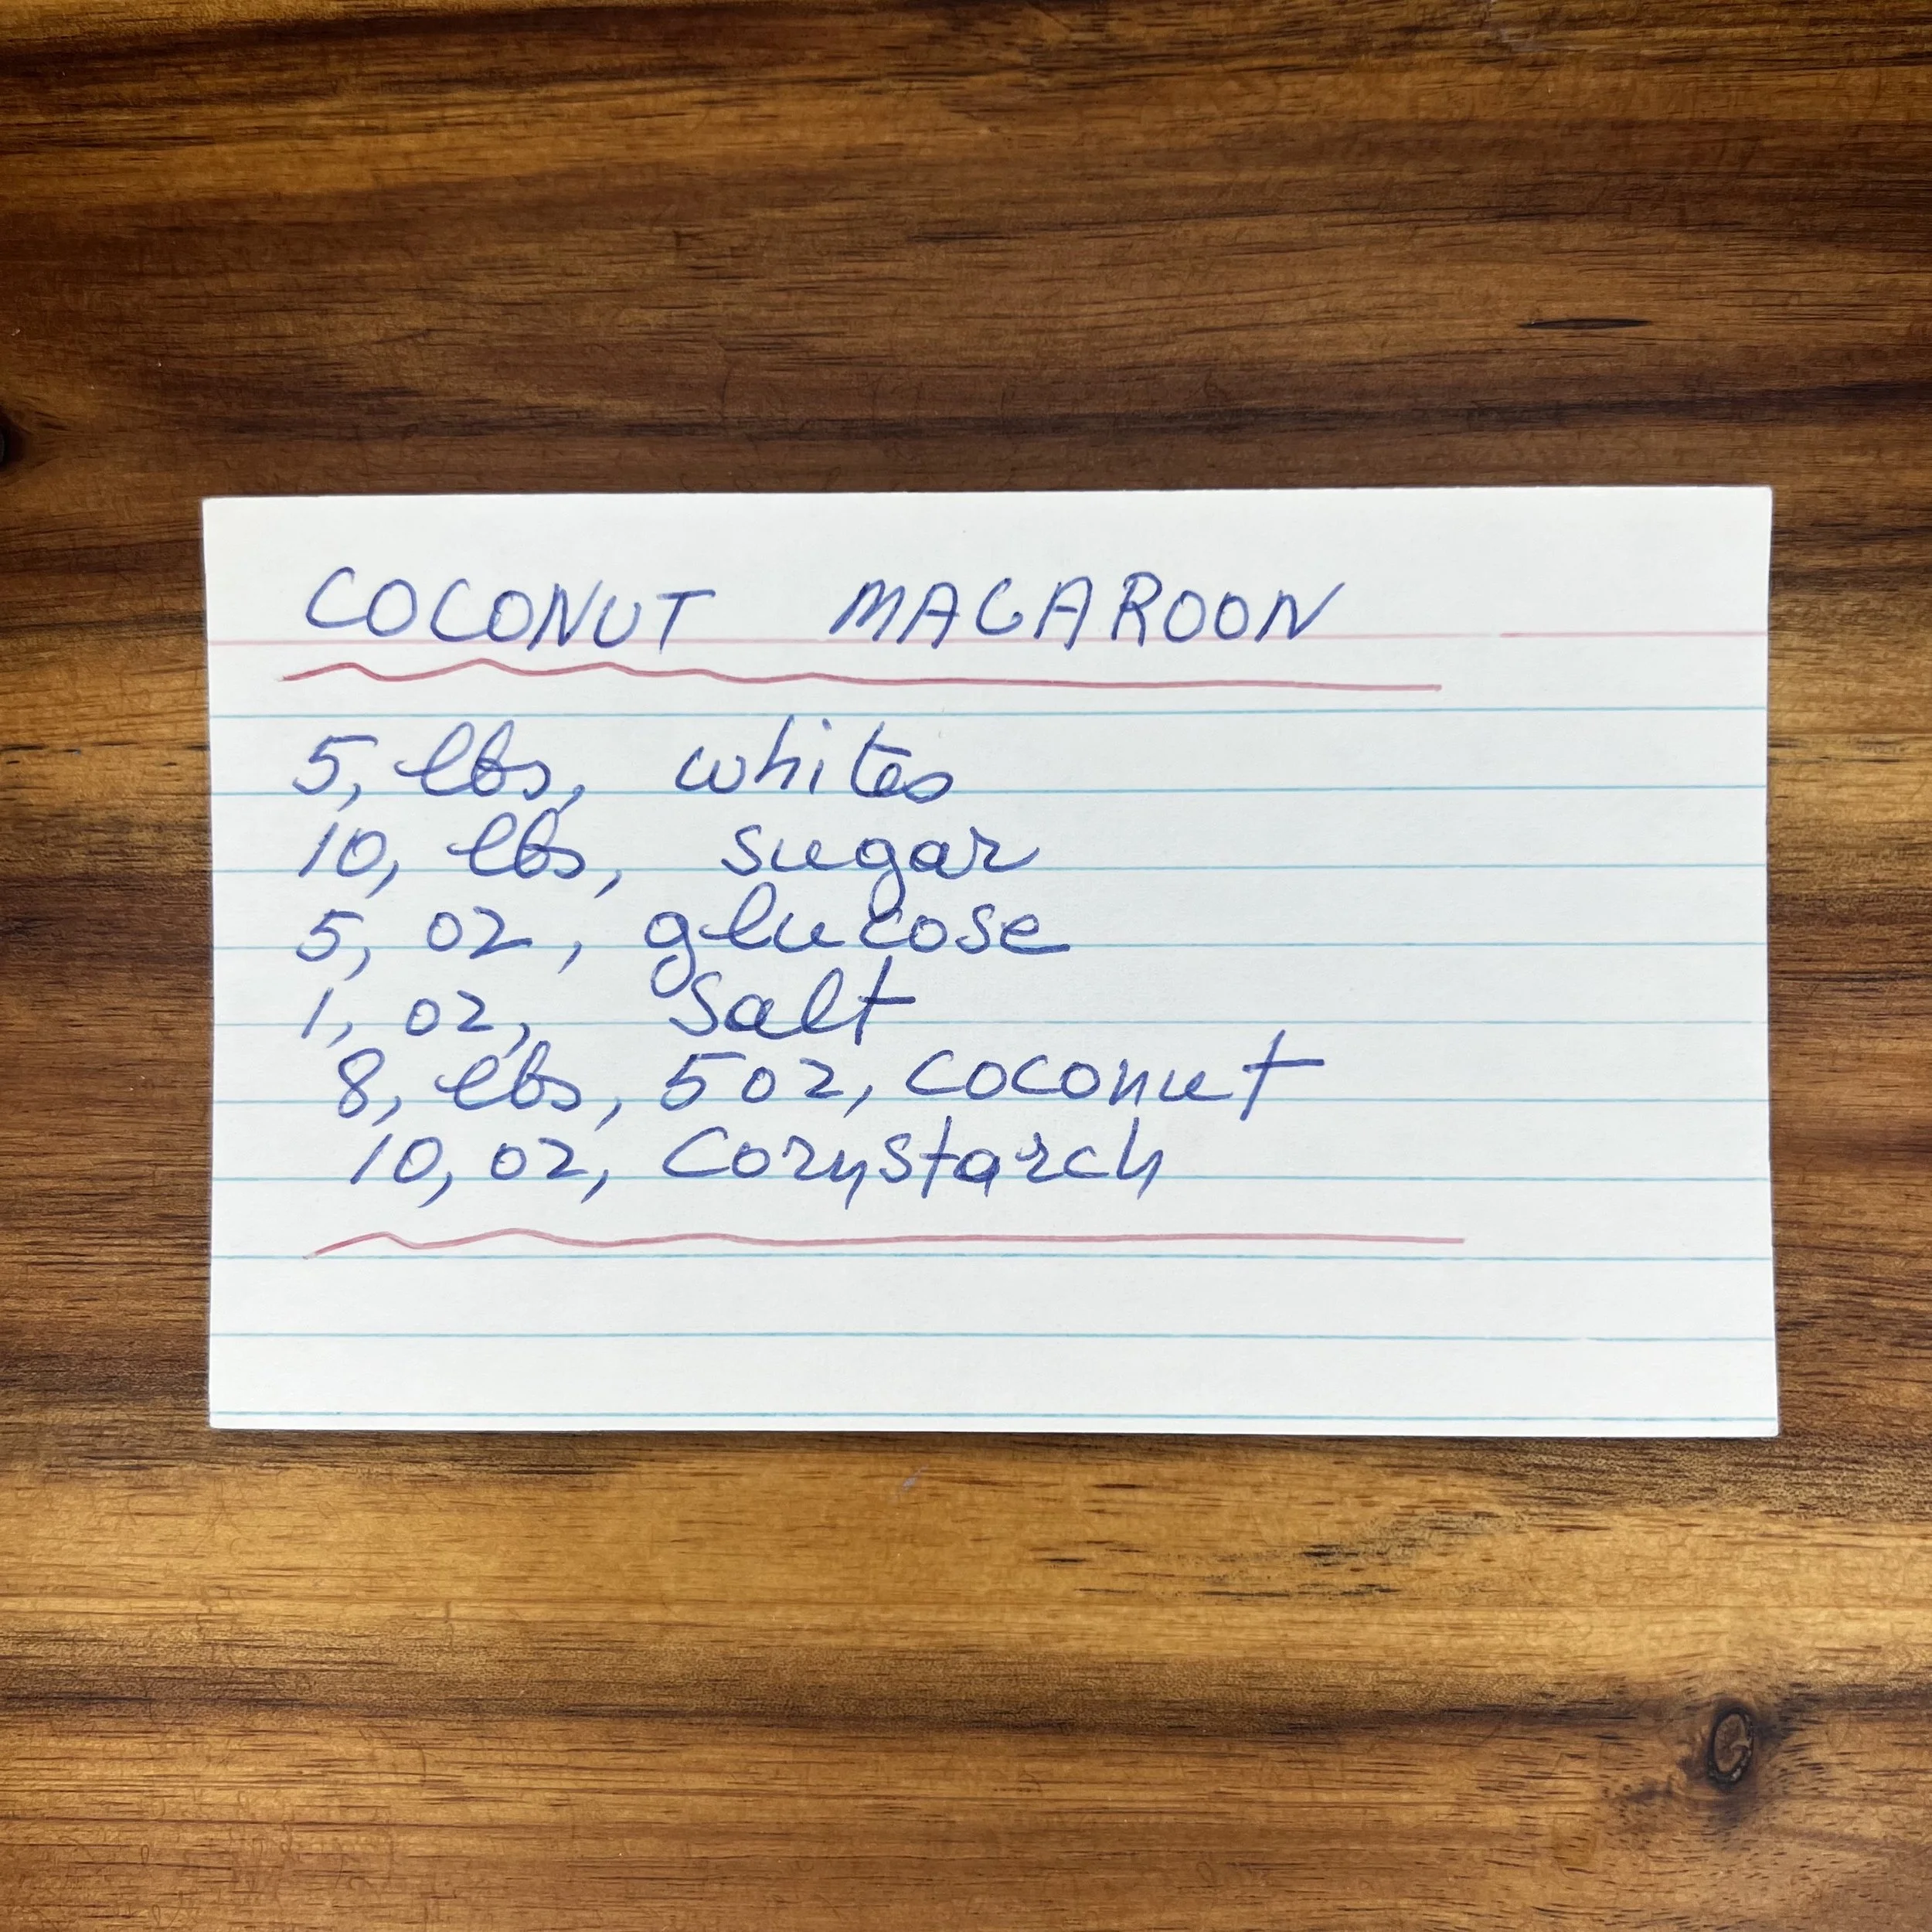 COCONUT MACAROON
5, lbs, whites
10, lbs, sugar
5, oz, glucose
1, oz, salt
8, lbs, 5 oz, coconut
10, oz, Cornstarch